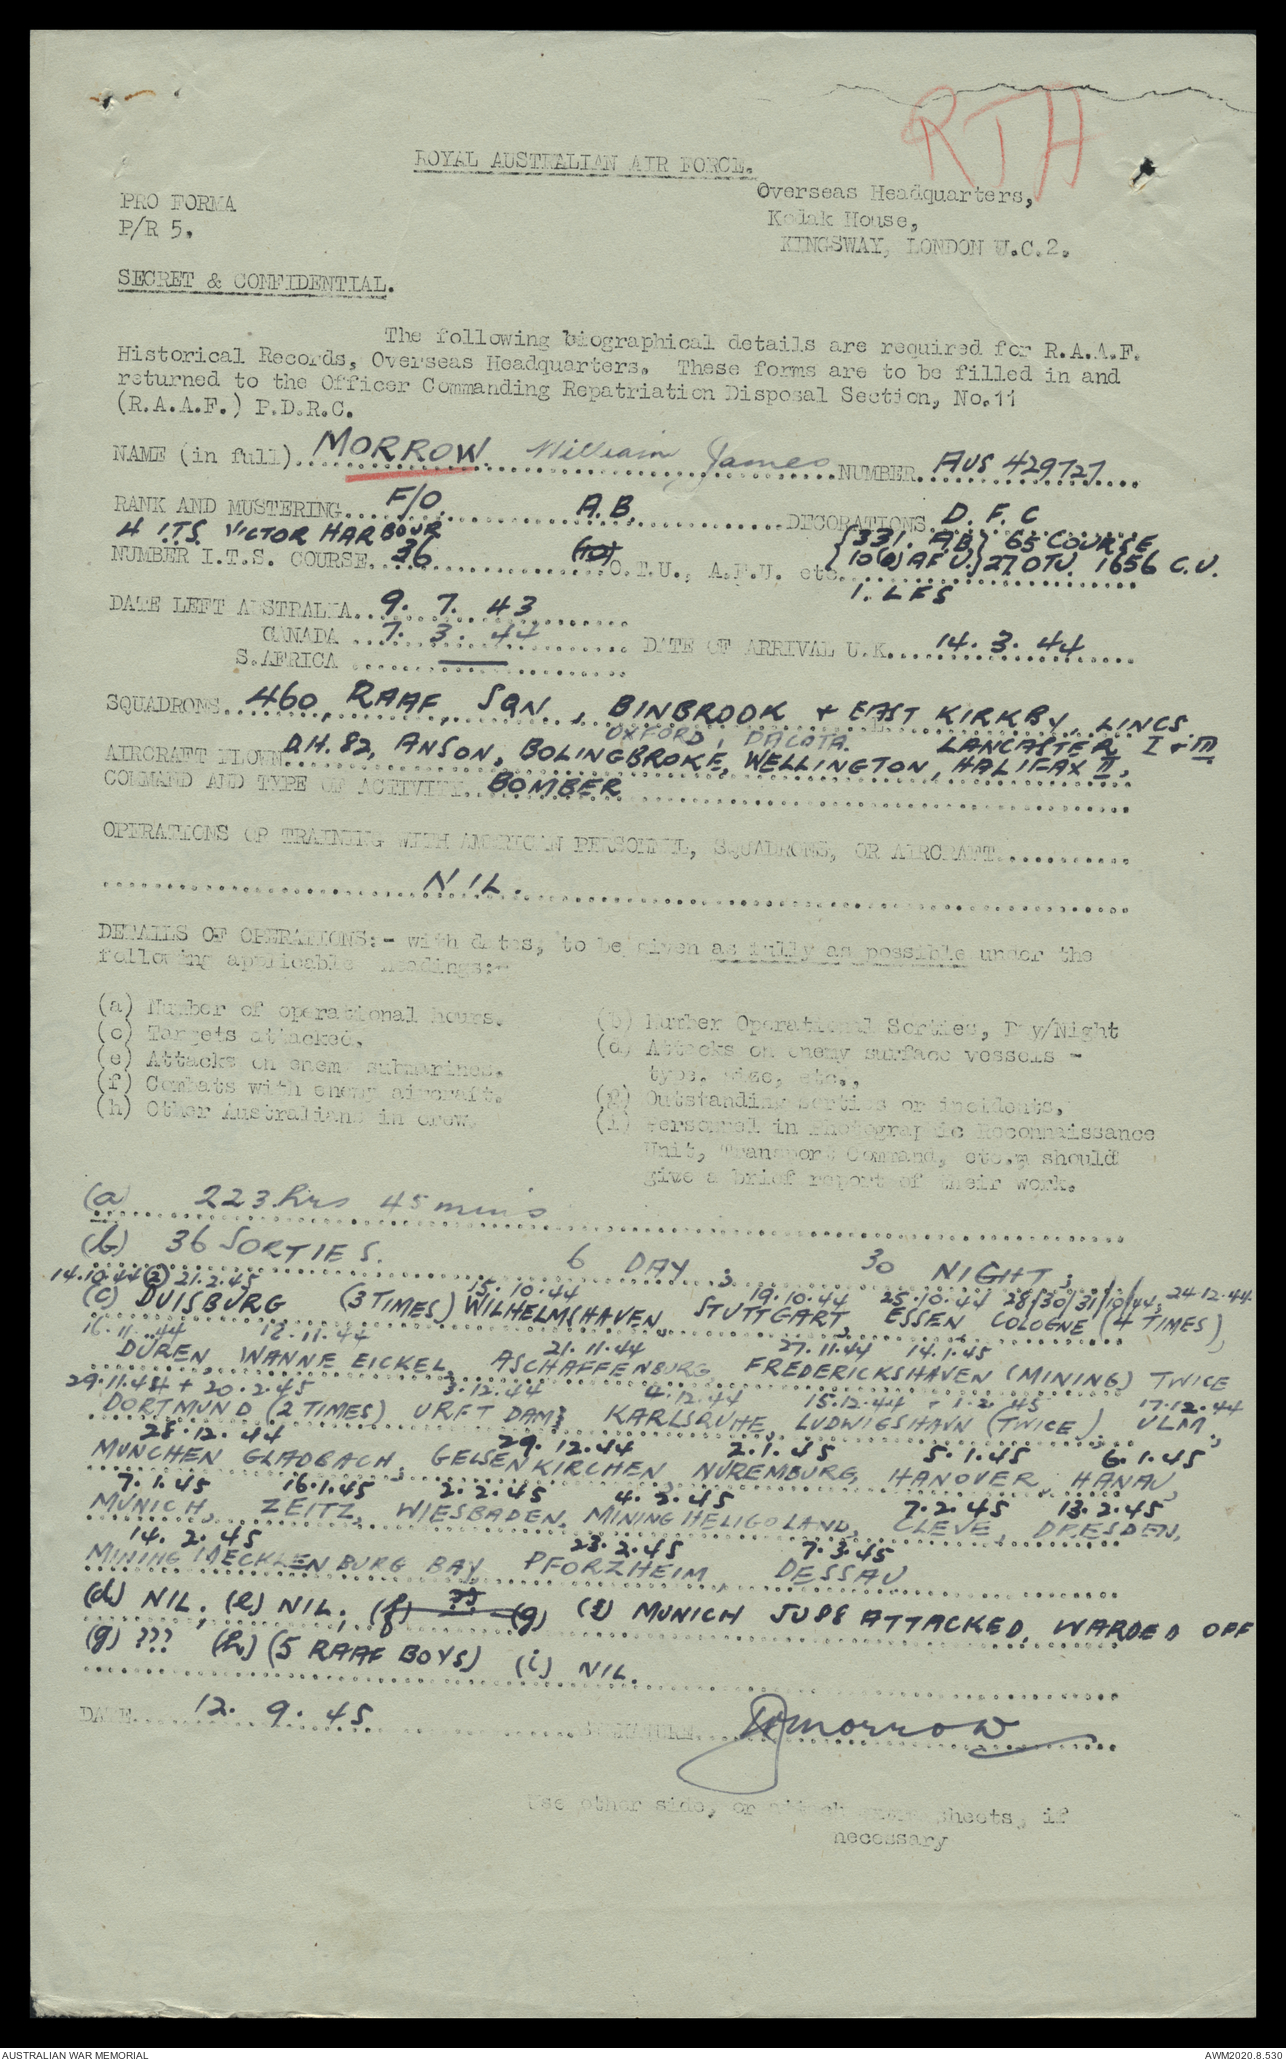 RTA
ROYAL AUSTRALIAN AIR FORCE.
Overseas Headquarters,
PRO FORMA
Kodak House,
P/R 5.
KINGSWAY, LONDON W.C.2.
SECRET & CONFIDENTIAL.
The following biographical details are required for R.A.A.F.
Historical Records, Overseas Headquarters. These forms are to be filled in and
returned to the Officer Commanding Repatriation Disposal Section, No.11
(R.A.A.F.) P.D.R.C.
NAME (in full). MORROW William James NUMBER. AUS 429727
RANK AND MUSTERING. F/O. A.B. DECORATIONS D.F.C
4 I.T.S. VICTOR HARBOUR {331. AB} 65 COURSE
NUMBER I.T.S. COURSE. 36 O.T.U., A.F.U. etc. {10(O) AFU.} 27 OTU. 1656 C.U.
1. LFS
DATE LEFT AUSTRALIA. 9. 7. 43
CANADA 7. 3. 44 DATE OF ARRIVAL U.K. 14. 3. 44
S.AFRICA —
SQUADRONS. 460, RAAF, SQN, BINBROOK + EAST KIRKBY, LINCS
OXFORD, DACOTA. LANCASTER I & III
AIRCRAFT FLOWN D.H. 82, ANSON, BOLINGBROKE, WELLINGTON, HALIFAX II,
COMMAND AND TYPE OF ACTIVITY. BOMBER
OPERATIONS OR TRAINING WITH AMERICAN PERSONNEL, SQUADRONS, OR AIRCRAFT
NIL.
DETAILS OF OPERATIONS:- with dates, to be given as fully as possible under the
following applicable headings:-
(a) Number of operational hours.
(b) Number Operational Sorties, Day/Night
(c) Targets attacked.
(d) Attacks on enemy surface vessels -
type, size, etc.,
(e) Attacks on enemy submarines.
(f) Combats with enemy aircraft.
(g) Outstanding sorties or incidents.
(h) Other Australians in crew.
(i) Personnel in Photographic Reconnaissance
Unit, Transport Command, etc., should
give a brief report of their work.
(a) 223 hrs 45 mins
(b) 36 SORTIES. 6 DAY; 30 NIGHT;
14.10.44 (2) 21.2.45 15.10.44 19.10.44 25.10.44 28/30/31/10/44, 24.12.44
(c) DUISBURG (3 TIMES) WILHELMSHAVEN, STUTTGART, ESSEN COLOGNE (4 TIMES),
16.11.44 18.11.44 21.11.44 27.11.44 14.1.45
DUREN, WANNE EICKEL, ASCHAFFENBURG, FREDERICKSHAVEN (MINING) TWICE
29.11.44 + 20.2.45 3.12.44 4.12.44 15.12.44 + 1.2.45 17.12.44
DORTMUND (2 TIMES) URFT DAM; KARLSRUHE, LUDWIGSHAVN (TWICE), ULM,
28.12.44 29.12.44 2.1.45 5.1.45 6.1.45
MUNCHEN GLADBACH, GELSENKIRCHEN, NUREMBURG, HANOVER, HANAU,
7.1.45 16.1.45 2.2.45 4.2.45 7.2.45 13.2.45
MUNICH, ZEITZ, WIESBADEN, MINING HELIGOLAND, CLEVE, DRESDEN,
14.2.45 23.2.45 7.3.45
MINING MECKLENBURG BAY, PFORZHEIM, DESSAU
(d) NIL; (e) NIL; (f) ?? (g) (f) MUNICH JU88 ATTACKED, WARDED OFF
(g) ??? (h) (5 RAAF BOYS) (i) NIL.
DATE. 12. 9. 45 SIGNATURE. WJMorrow
Use other side, or attach extra sheets, if
necessary
AUSTRALIAN WAR MEMORIAL
AWM2020.8.530